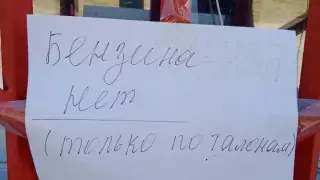 Бензина
нет
(только по талонам)